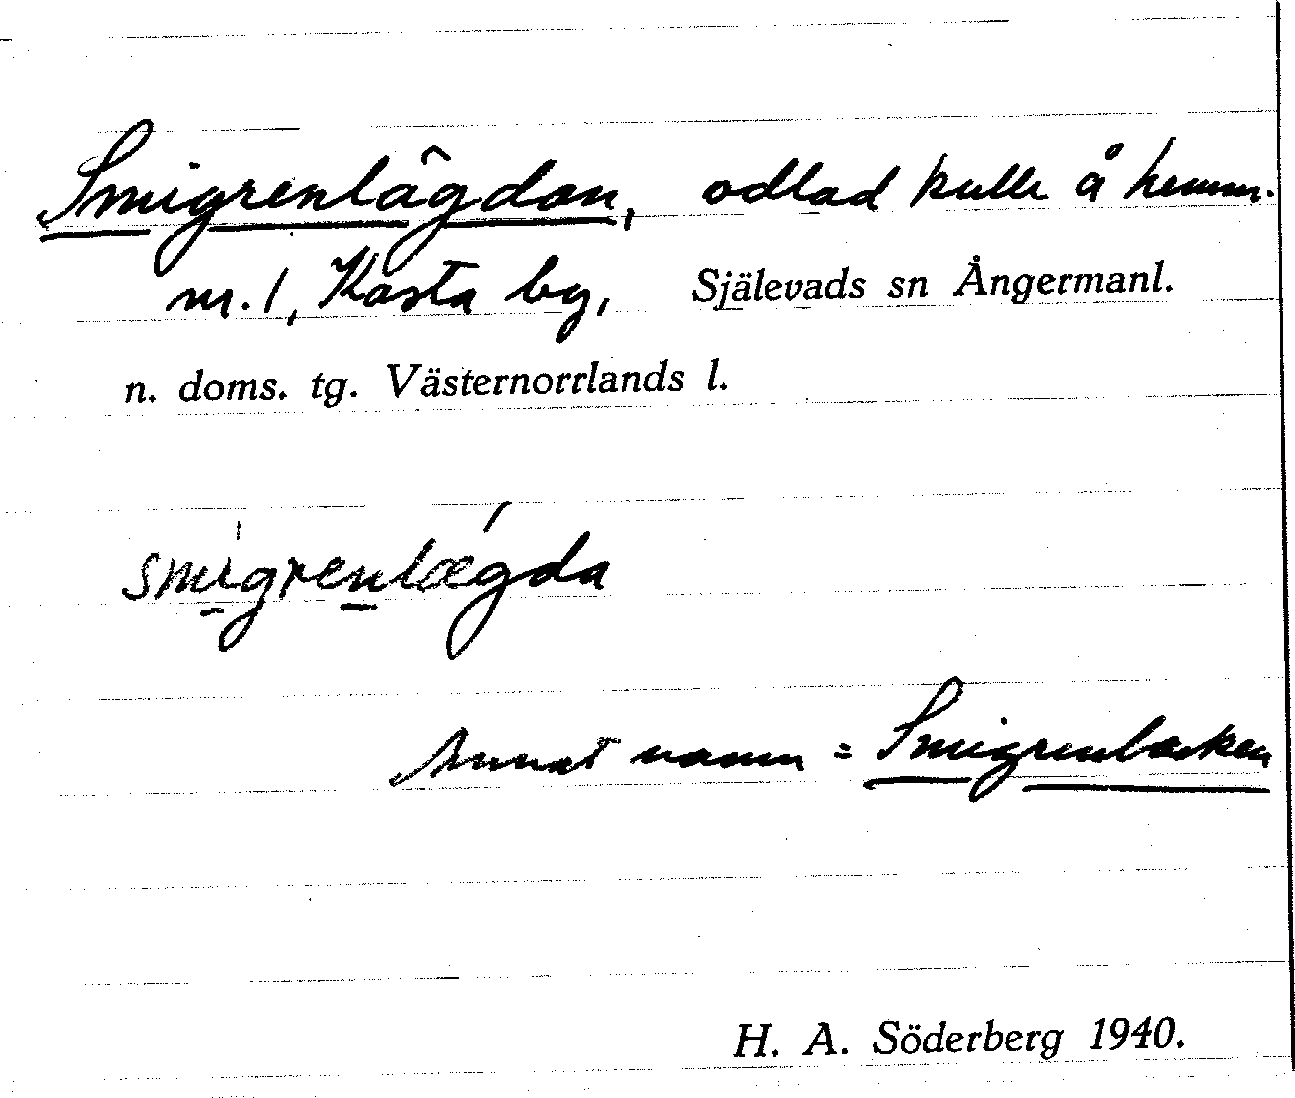 Smigrenlâgdan, odlad kulle å hemm.
nr. 1, Kasta by, Själevads sn Ångermanl.
n. doms. tg. Västernorrlands l.
smigrenlægda
Annat namn = Smigrenbacken
H. A. Söderberg 1940.